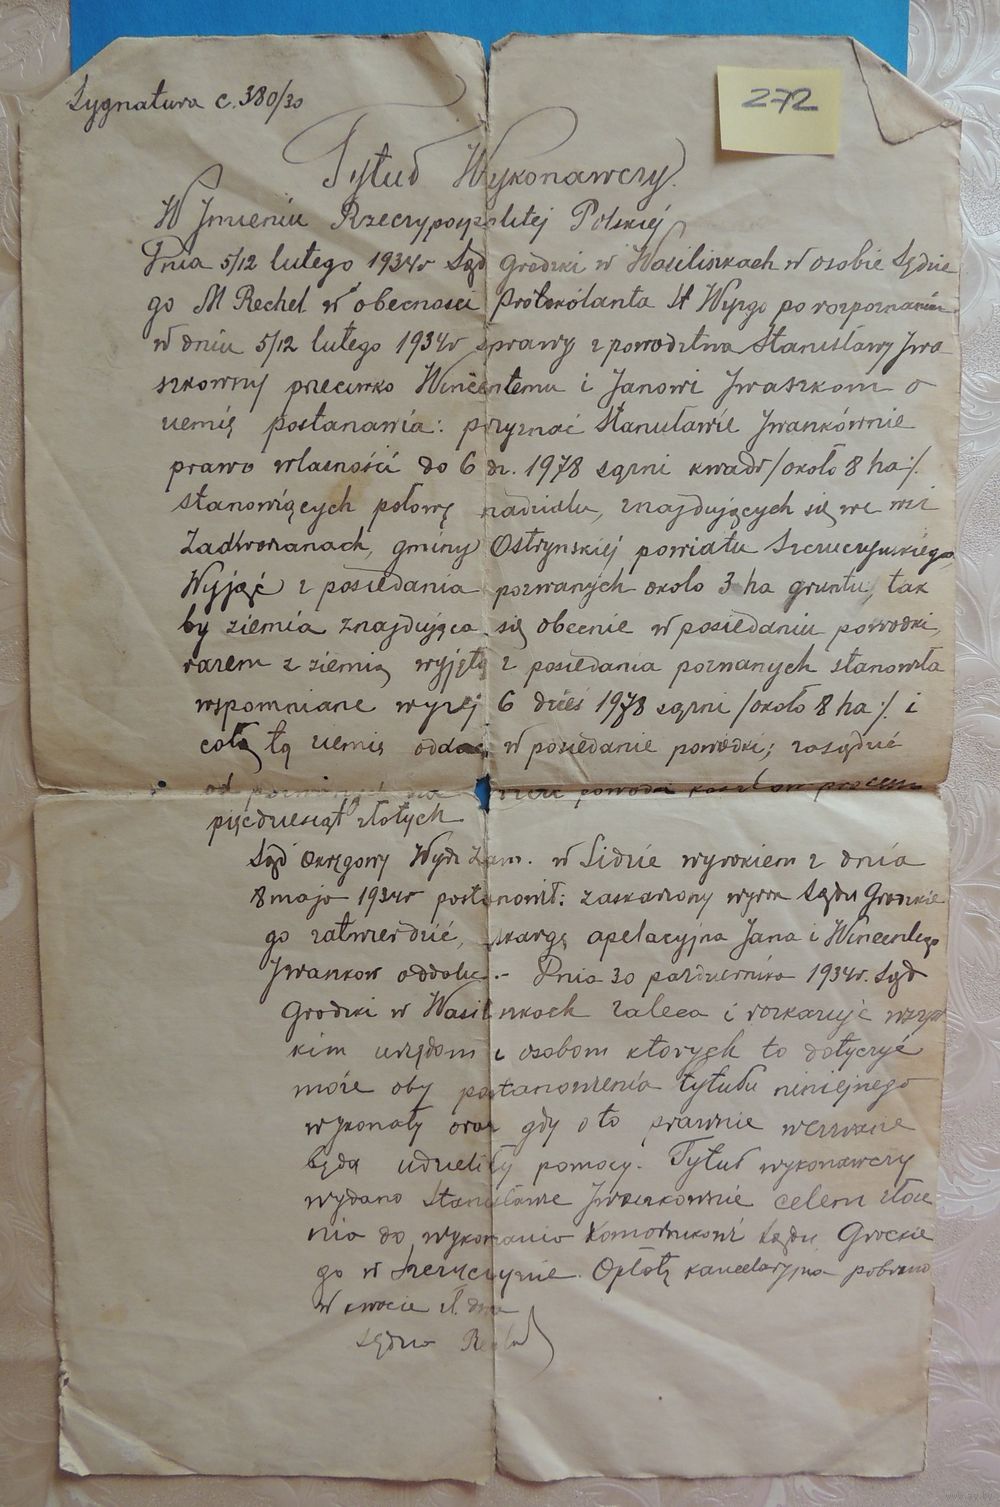 Sygnatura c. 380/30
272
Tytuł Wykonawczy.
W Jmieniu Rzeczypospolitej Polskiej
Dnia 5/12 lutego 1934r Sąd Grodzki w Wasiliszkach w osobie Sędzie
go M Rechel w obecności Protokólanta St Wyzgo po rozpoznaniu
w dniu 5/12 lutego 1934r sprawy z powództwa Stanisławy Jwa
szkowny przeciwko Wincentemu i Janowi Jwaszkom o
ziemię postanawia: przyznać Stanisławie Jwankównie
prawo własności do 6 dz. 1978 sążni kwadr/około 8 ha/.
stanowiących połowę nadziału, znajdujących się we wsi
Zadworzanach, gminy Ostrynskiej powiatu Szczuczynskiego,
Wyjąć z posiedania pozwanych około 3 ha gruntu, tak
by ziemia znajdująca się obecnie w posiedaniu powodki,
razem z ziemią wyjętą z posiedania pozwanych stanowiła
wspomniane wyżej 6 dzies 1978 sążni /około 8 ha/. i
całą tą ziemię oddać w posiedanie powodki; zasądzić
od pozwanych na rzecz powoda kosztów procesu
pięćdziesiąt złotych
Sąd Okręgowy Wydz Zam. w Lidzie wyrokiem z dnia
8 maja 1934r postanowił: zaskarżony wyrok Sądu Grodzkie
go zatwierdzić, skargę apelacyjna Jana i Wincentego
Jwankow oddalić.- Dnia 30 pazdziernika 1934r. Sąd
Grodzki w Wasiliszkach zaleca i rozkazuje wszys
kim urzędom i osobom których to dotyczyć
może aby postanowienia tytułu niniejszego
wykonały oraz gdy o to prawnie wezwane
będą udzieliły pomocy. Tytuł wykonawczy
wydano Stanisławie Jwaszkownie celem złoże
nia do wykonania Komornikowi Sądu Grockie
go w Szczuczynie. Opłatę kancelaryjna pobrano
w kwocie zł. dwa
Sędzia Rechel